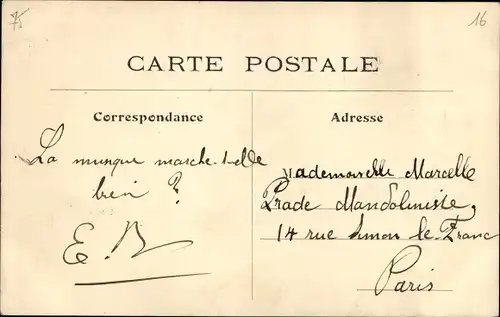 75
16
CARTE POSTALE
Correspondance
Adresse
La musique marche-t-elle
bien ?
E. B
Mademoiselle Marcelle
Prade Mandoliniste,
14 rue Simon le Franc
Paris